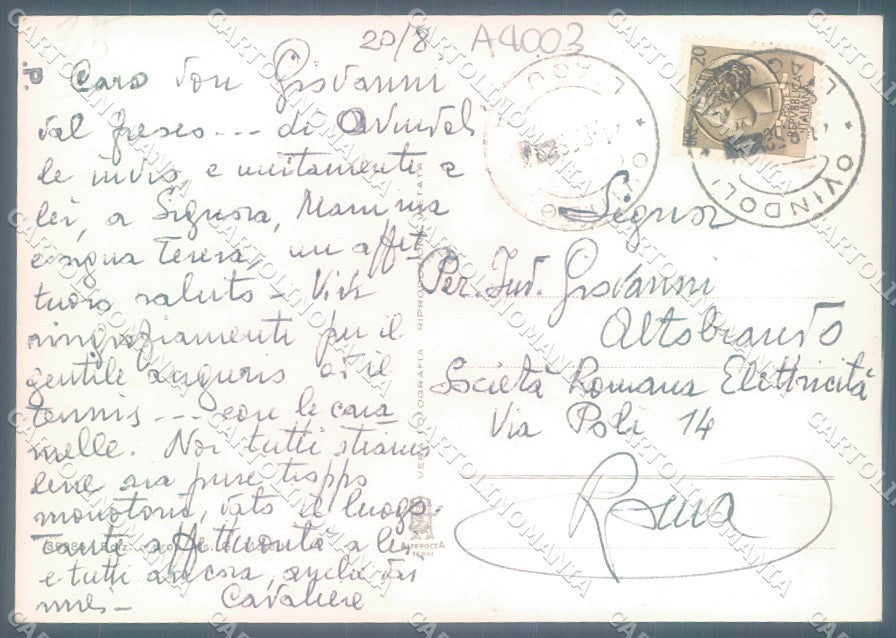 20/8 A4003
P.
Caro Don Giovanni
dal fresco --- di Ovindoli
le invio e unitamente a
lei, a Signora, Mamma
e signa Teresa, un affet
tuoso saluto - Vivi
ringraziamenti per il
gentile augurio ed il
tennis --- con le cara
melle. Noi tutti stiamo
bene sia pure troppo
monotoni, dato il luogo.
Tante affettuosità a lei
e tutti ancora, anche dai
miei -
Cavaliere
VERA FOTOGRAFIA RIPRODUZIONE VIETATA
INTEROCCA
TERNI
OVINDOLI
L'AQUILA
20
Signor
Per. Ind. Giovanni
Altobrando
Società Romana Elettricità
Via Poli 14
Roma
CARTOLINOMANIA